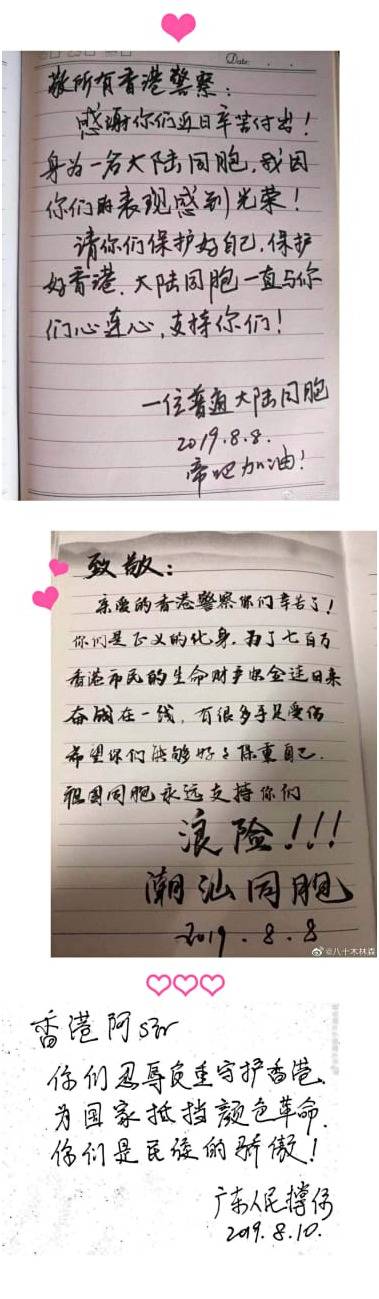 Date: . .
敬所有香港警察：
感谢你们近日辛苦付出！
身为一名大陆同胞，我因
你们的表现感到光荣！
请你们保护好自己，保护
好香港，大陆同胞一直与你
们心连心，支持你们！
一位普通大陆同胞
2019.8.8.
帝吧加油！
致敬：
亲爱的香港警察你们辛苦了！
你们是正义的化身，为了七百万
香港市民的生命财产安全连日来
奋战在一线，有很多手足受伤
希望你们能够好好保重自己.
祖国同胞永远支持你们
浪险!!!
潮汕同胞
2019.8.8
@八十木林森
香港阿sir
你们忍辱负重守护香港，
为国家抵挡颜色革命.
你们是民族的骄傲！
广东人民撑你
2019.8.10.